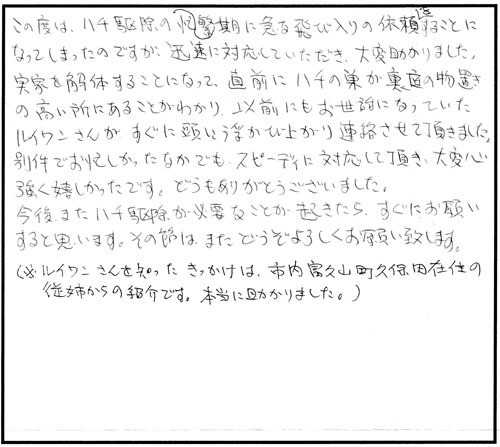 この度は、ハチ駆除の忙繁期に急な飛び入りの依頼することに
なってしまったのですが、迅速に対応していただき、大変助かりました。
実家を解体することになって、直前にハチの巣が裏庭の物置き
の高い所にあることがわかり、以前にもお世話になっていた
ルイワンさんがすぐに頭に浮かび上がり連絡させて頂きました。
別件でお忙しかったなかでも、スピーディに対応して頂き、大変心
強く嬉しかったです。どうもありがとうございました。
今後、またハチ駆除が必要なことが起きたら、すぐにお願い
すると思います。その節は、またどうぞよろしくお願い致します。
(※ルイワンさんを知ったきっかけは、市内富久山町久保田在住の
従姉からの紹介です。本当に助かりました。)